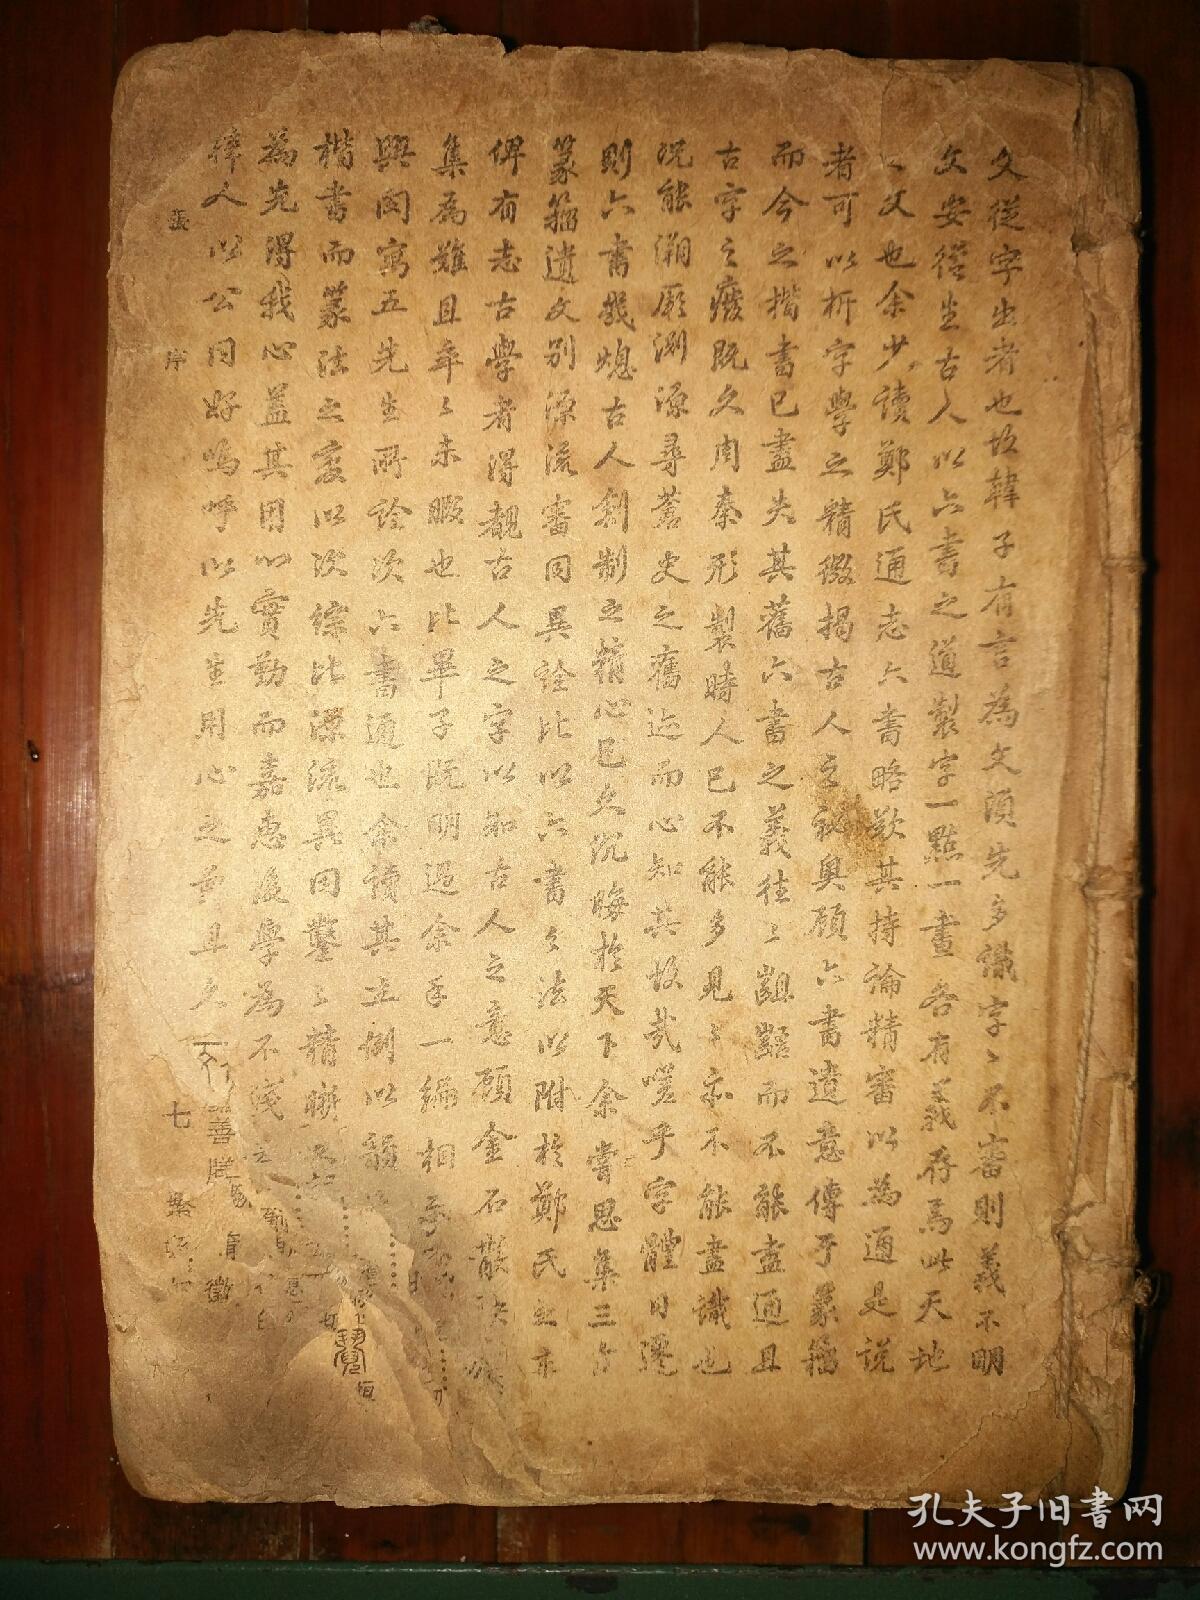 文從字出者也故韓子有言為文須先多識字〻不審則義不明
文安從生古人以六書之道製字一點一畫各有義存焉此天地
〻文也余少讀鄭氏通志六書略歎其持論精審以為通是說
者可以析字學之精微揭古人之祕奧顧六書遺意傳于篆籀
而今之楷書已盡失其舊六書之義往〻齟齬而不能盡通且
古字之廢既久周秦形製時人已不能多見〻亦不能盡識也
況能溯厥淵源尋蒼史之舊迹而心知其故哉嗟乎字體日遷
則六書幾熄古人創制之精心已久沉晦於天下余嘗思集三
篆籀遺文別源流審同異詮比以六書〻法以附於鄭氏之末
俾有志古學者得覩古人之字以知古人之意顧金石散
集為難且卒〻未暇也比畢子既明過余手一編相示
與閔寓五先生所詮次六書通也余讀其立例以韻
楷書而篆法之變以次綜比源流異同鑿〻精
為先得我心蓋其用以實勤而嘉惠後學為不淺
梓人以公同好嗚呼以先生用心之重且久
張序
七
孔夫子旧书网
www.kongfz.com